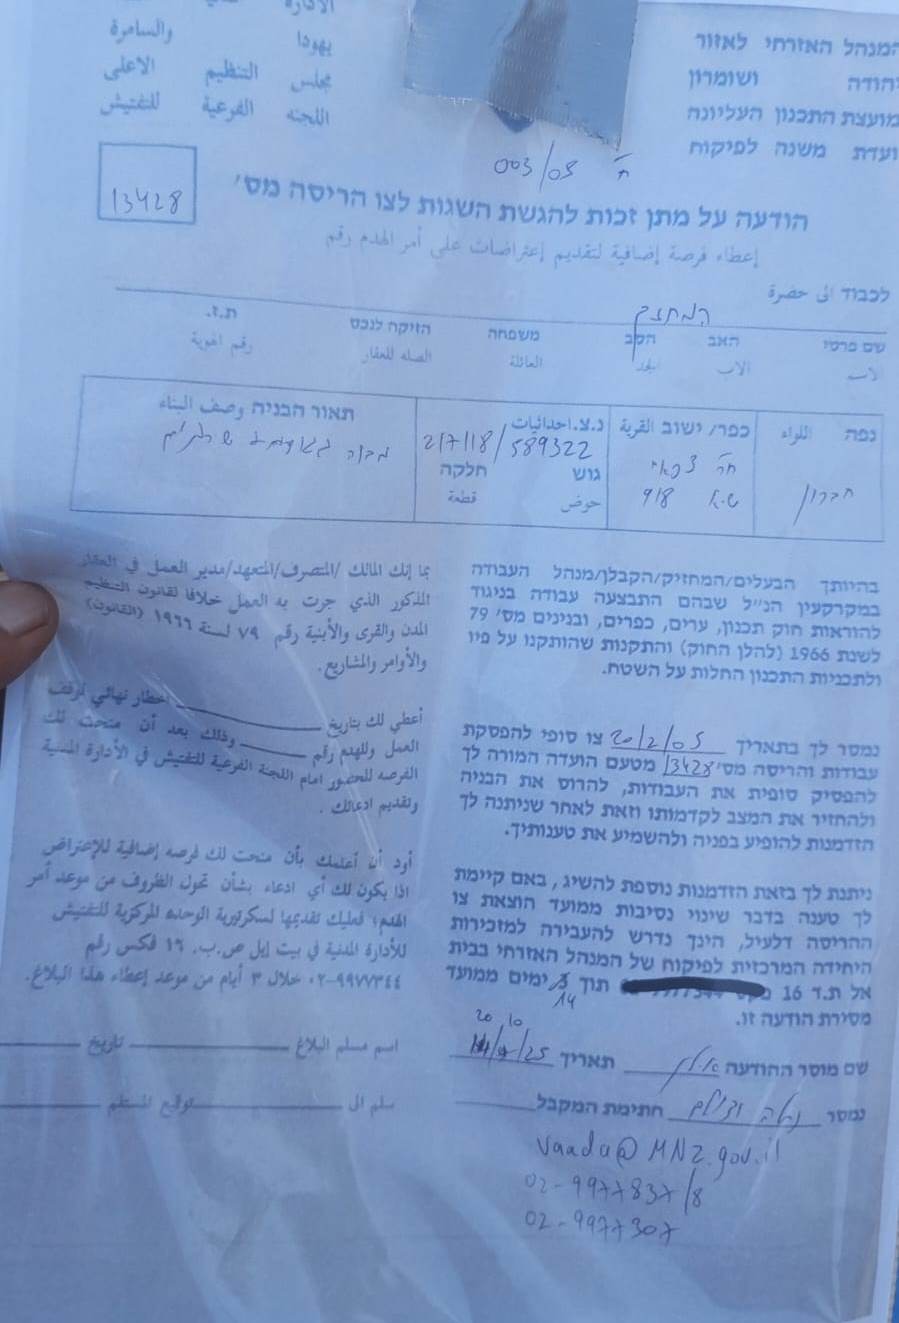 המנהל האזרחי לאזור
יהודה ושומרון
מועצת התכנון העליונה
ועדת משנה לפיקוח
الادارة
يهودا والسامرة
مجلس التنظيم الاعلى
اللجنه الفرعية للتفتيش
ח 003/05
הודעה על מתן זכות להגשת השגות לצו הריסה מס׳
13428
إعطاء فرصة إضافية لتقديم إعتراضات على أمر الهدم رقم
לכבוד الى حضرة
המחזיק
שם פרטי האב הסב משפחה הזיקה לנכס ת.ז.
الاب الجد العائلة الصله للعقار رقم الهوية
נפה اللواء
חברון
כפר/ישוב القرية
ח׳
918
נ.צ. احداثيات
217118/589322
גוש חלקה
حوض قطعة
תאור הבניה وصف البناء
מבנה
בהיותך הבעלים/המחזיק/הקבלן/מנהל העבודה
במקרקעין הנ״ל שבהם התבצעה עבודה בניגוד
להוראות חוק תכנון, ערים, כפרים, ובנינים מס׳ 79
לשנת 1966 (להלן החוק) והתקנות שהותקנו על פיו
ולתכניות התכנון החלות על השטח.
נמסר לך בתאריך 20/2/05 צו סופי להפסקת
עבודות והריסה מס׳ 13428 מטעם הועדה המורה לך
להפסיק סופית את העבודות, להרוס את הבניה
ולהחזיר את המצב לקדמותו וזאת לאחר שניתנה לך
הזדמנות להופיע בפניה ולהשמיע את טענותיך.
ניתנת לך בזאת הזדמנות נוספת להשיג, באם קיימת
לך טענה בדבר שינוי נסיבות ממועד הוצאת צו
ההריסה דלעיל, הינך נדרש להעבירה למזכירות
היחידה המרכזית לפיקוח של המנהל האזרחי בבית
אל ת.ד 16 תוך 14 ימים ממועד
מסירת הודעה זו.
שם מוסר ההודעה תאריך 20/10/25
נמסר חתימת המקבל
vaada@MNZ.gov.il
02-9977837/8
02-9977307
بما إنك المالك/المتصرف/المتعهد/مدير العمل في العقار
المذكور الذي جرت به العمل خلافا لقانون التنظيم
المدن والقرى والأبنية رقم ٧٩ لسنة ١٩٦٦ (القانون)
والأوامر والمشاريع.
أعطي لك بتاريخ اخطار نهائي لوقف
العمل وللهدم رقم وذلك بعد أن منحت لك
الفرصه للحضور امام اللجنة الفرعية للتفتيش في الأدارة المدنية
وتقديم ادعائك.
أود أن أعلمك بأن منحت لك فرصه إضافية للإعتراض
اذا يكون لك أي ادعاء بشأن تحول الظروف من موعد أمر
الهدم؛ فعليك تقديمها لسكرتورية الوحده المركزية للتفتيش
للأدارة المدنية في بيت إيل ص.ب. ١٦ فكس رقم
٠٢-٩٩٧٧٣٤٤ خلال ٣ أيام من موعد إعطاء هذا البلاغ.
اسم مسلم البلاغ تاريخ
سلم الى توقيع المستلم